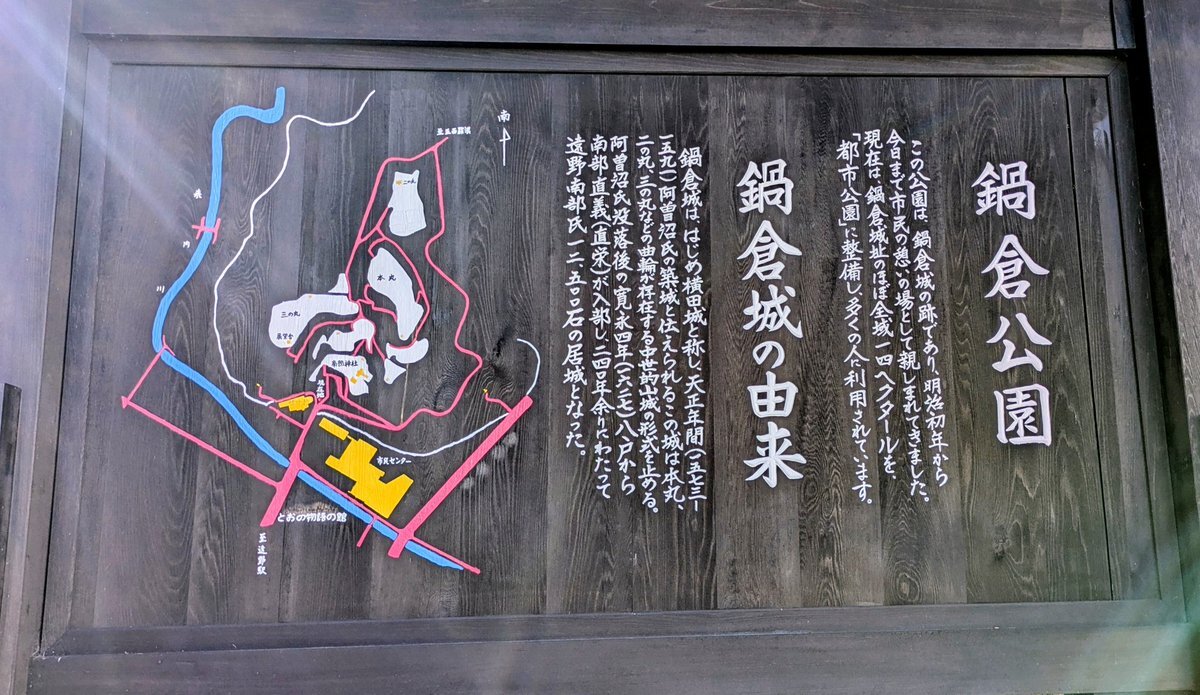 鍋倉公園
この公園は、鍋倉城の跡であり、明治初年から
今日まで市民の憩いの場として親しまれてきました。
現在は、鍋倉城址のほぼ全域一四ヘクタールを、
「都市公園」に整備し、多くの人に利用されています。
鍋倉城の由来
鍋倉城は、はじめ横田城と称し、天正年間(一五七三―
一五九一)阿曽沼氏の築城と伝えられるこの城は本丸、
二の丸、三の丸などの曲輪が存在する中世的山城の形式を止める。
阿曽沼氏没落後の寛永四年(一六二七)八戸から
南部直義(直栄)が入部し、二四〇年余りにわたって
遠野南部氏一二、五〇〇石の居城となった。
南
二の丸
本丸
三の丸
展望台
南部神社
来内川
市民センター
とおの物語の館
至遠野駅